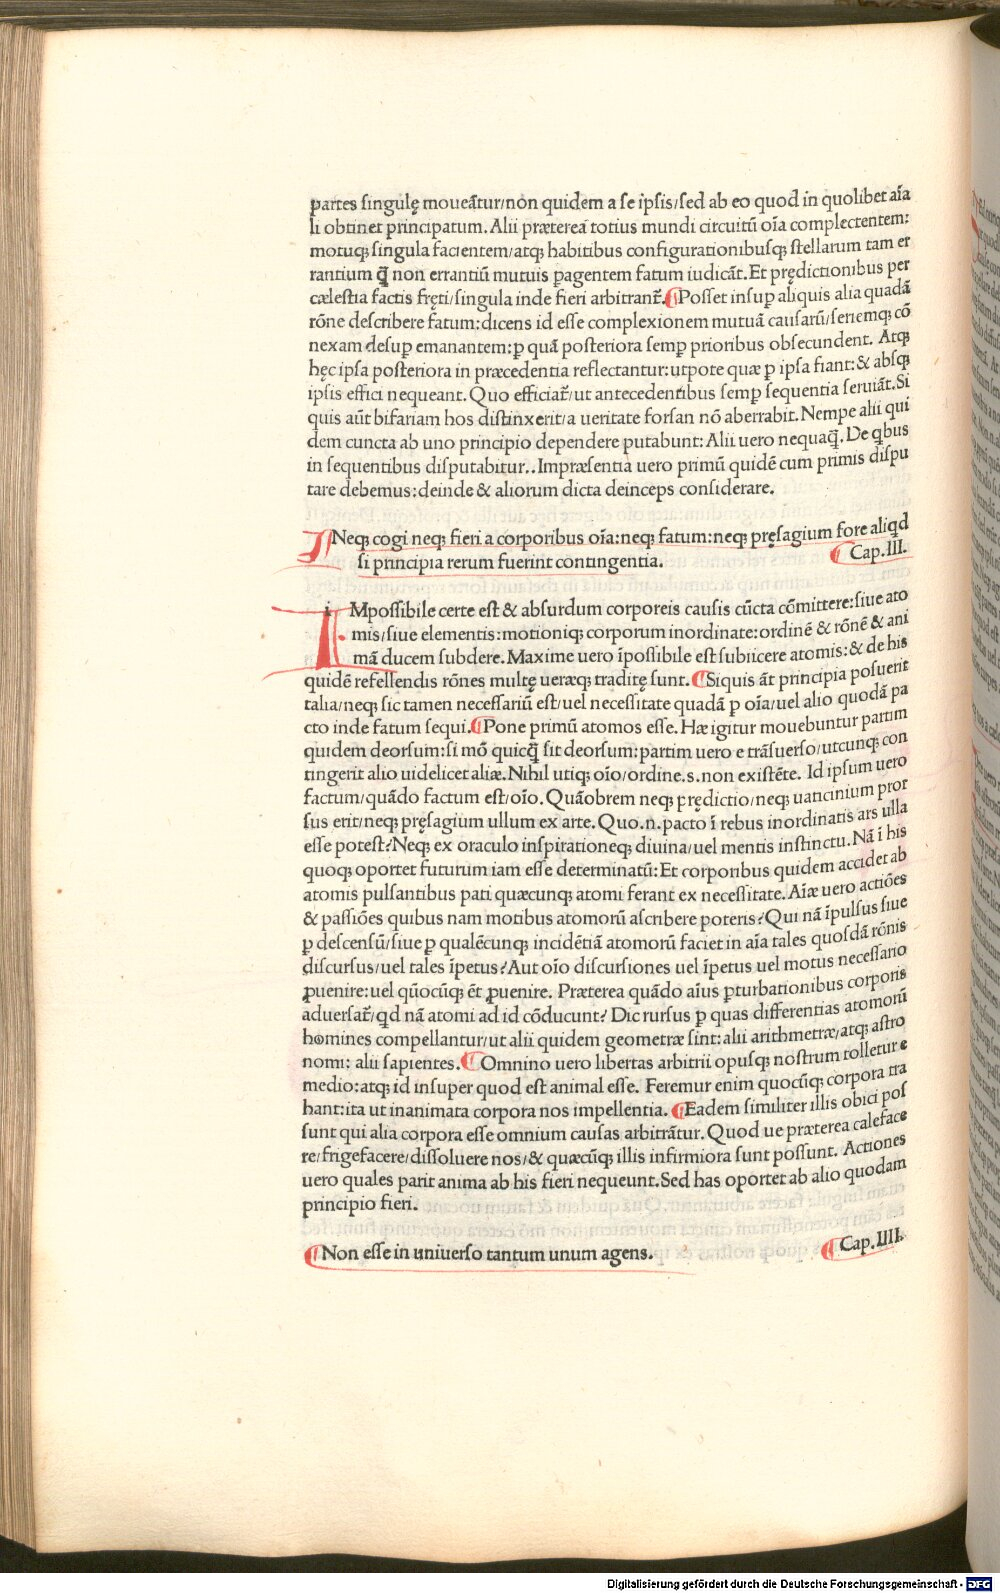 partes singulę moueãtur/non quidem a se ipsis/sed ab eo quod in quolibet aĩa
li obtinet principatum. Alii præterea totius mundi circuitũ oĩa complectentem:
motuqꝫ singula facientem/atqꝫ habitibus configurationibusqꝫ stellarum tam er
rantium q̃ non errantiũ mutuis ꝑagentem fatum iudicãt. Et prędictionibus per
cælestia factis fręti/singula inde fieri arbitrant̃. ¶Posset insuꝑ aliquis alia quadã
rõne describere fatum: dicens id esse complexionem mutuã causarũ/seriemqꝫ cõ
nexam desuꝑ emanantem: ꝑ quã posteriora semꝑ prioribus obsecundent. Atqꝫ
hęc ipsa posteriora in præcedentia reflectantur: utpote quæ ꝑ ipsa fiant: & absqꝫ
ipsis effici nequeant. Quo efficiat̃/ut antecedentibus semꝑ sequentia seruiãt. Si
quis aũt bifariam hos distinxerit/a ueritate forsan nõ aberrabit. Nempe alii qui
dem cuncta ab uno principio dependere putabunt: Alii uero nequaq̃. De q̃bus
in sequentibus disputabitur.. Impræsentia uero primũ quidẽ cum primis dispu
tare debemus: deinde & aliorum dicta deinceps considerare.
¶Neqꝫ cogi neqꝫ fieri a corporibus oĩa: neqꝫ fatum: neqꝫ pręsagium fore aliq̇d
si principia rerum fuerint contingentia. ¶Cap. III.
IMpossibile certe est & absurdum corporeis causis cũcta cõmittere: siue ato
mis/siue elementis: motioniqꝫ corporum inordinate: ordinẽ & rõnẽ & ani
mã ducem subdere. Maxime uero ĩpossibile est subiicere atomis: & de his
quidẽ refellendis rõnes multę ueræqꝫ traditę sunt. ¶Siquis ãt principia posuerit
talia/neqꝫ sic tamen necessariũ est/uel necessitate quadã ꝑ oĩa/uel alio quodã pa
cto inde fatum sequi. ¶Pone primũ atomos esse. Hæ igitur mouebuntur partim
quidem deorsum: si mõ quicq̃ sit deorsum: partim uero e trãsuerso/utcunqꝫ con
tingerit alio uidelicet aliæ. Nihil utiqꝫ oĩo/ordine.s. non existẽte. Id ipsum uero
factum/quãdo factum est/oĩo. Quãobrem neqꝫ prędictio/neqꝫ uaticinium pror
sus erit/neqꝫ pręsagium ullum ex arte. Quo.n. pacto ĩ rebus inordinatis ars ulla
esse potest? Neqꝫ ex oraculo inspirationeqꝫ diuina/uel mentis instinctu. Nã ĩ his
quoqꝫ oportet futurum iam esse determinatũ: Et corporibus quidem accidet ab
atomis pulsantibus pati quæcunqꝫ atomi ferant ex necessitate. Aĩæ uero actiões
& passiões quibus nam motibus atomorũ ascribere poteris? Qui nã ĩpulsus siue
ꝑ descensũ/siue ꝑ qualẽcunqꝫ incidẽtiã atomorũ faciet in aĩa tales quosdã rõnis
discursus/uel tales ĩpetus? Aut oĩo discursiones uel ĩpetus uel motus necessario
ꝓuenire: uel qũocũqꝫ ẽt ꝓuenire. Præterea quãdo aĩus ꝑturbationibus corporis
aduersat̃/q̇d nã atomi ad id cõducunt? Dic rursus ꝑ quas differentias atomorũ
homines compellantur/ut alii quidem geometræ sint: alii arithmetræ/atqꝫ astro
nomi: alii sapientes. ¶Omnino uero libertas arbitrii opusqꝫ nostrum tolletur e
medio: atqꝫ id insuper quod est animal esse. Feremur enim quocũqꝫ corpora tra
hant: ita ut inanimata corpora nos impellentia. ¶Eadem similiter illis obici pos
sunt qui alia corpora esse omnium causas arbitrãtur. Quod ue præterea caleface
re/frigefacere/dissoluere nos/& quæcũqꝫ illis infirmiora sunt possunt. Actiones
uero quales parit anima ab his fieri nequeunt. Sed has oportet ab alio quodam
principio fieri.
¶Non esse in uniuerso tantum unum agens. ¶Cap. IIII.
Digitalisierung gefördert durch die Deutsche Forschungsgemeinschaft - DFG